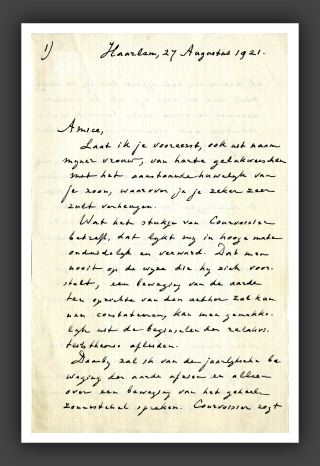 1)
Haarlem, 27 Augustus 1921.
Amice,
Laat ik je vooreerst, ook uit naam
mijner vrouw, van harte gelukwenschen
met het aanstaande huwelijk van
je zoon, waarover je je zeker zeer
zult verheugen.
Wat het stukje van Courvoisier
betreft, dat lijkt mij in hooge mate
onduidelijk en verward. Dat men
nooit op de wijze die hij zich voor-
stelt, een beweging van de aarde
ten opzichte van den aether zal kun
nen constateeren, kan men gemakke-
lijk uit de beginselen der relativi-
teitstheorie afleiden.
Daarbij zal ik van de jaarlijksche be
weging der aarde afzien en alleen
over een beweging van het geheele
zonnestelsel spreken. Courvoisier zegt